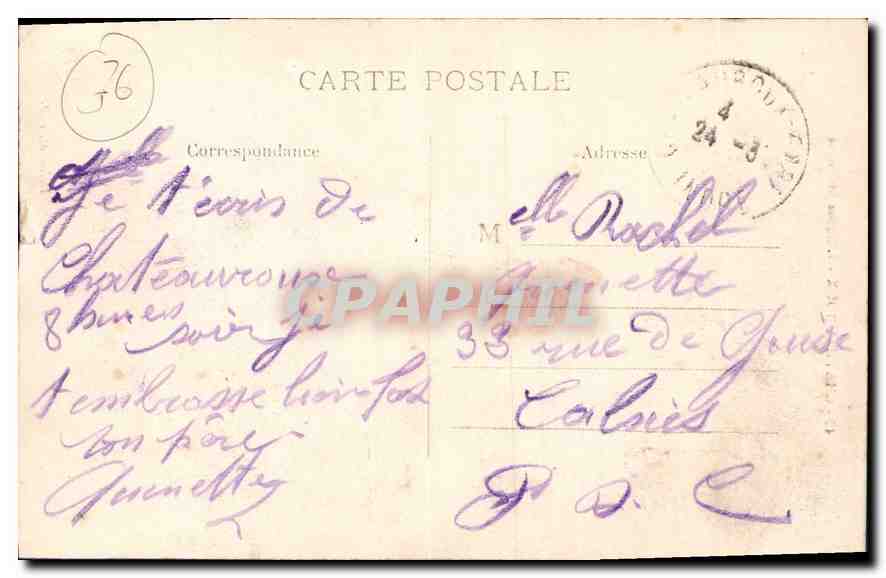 36
CARTE POSTALE
Correspondance
Je t'écris de
Chateauroux
8 heures soir je
t embrasse bien fort
ton père
Adresse
4
24 -3
Melle Rachel
33 rue de
Calais
P. d. C
CPAPHIL